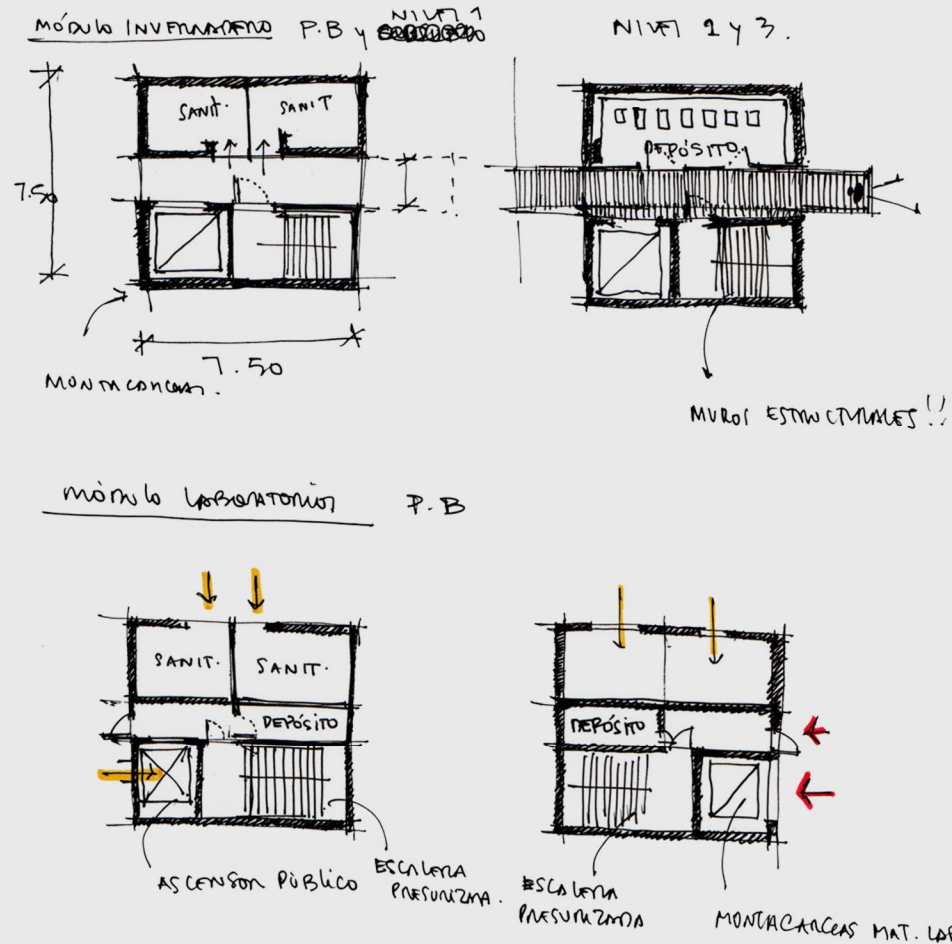 MÓDULO INVERNADERO P.B y NIVEL 1
NIVEL 1 y 3.
SANIT. SANIT
7.50
7.50
MONTACARGAS.
DEPÓSITO
MUROS ESTRUCTURALES!!
MÓDULO LABORATORIOS P.B
SANIT. SANIT.
DEPÓSITO
ASCENSOR PÚBLICO
ESCALERA
PRESURIZADA.
DEPÓSITO
ESCALERA
PRESURIZADA
MONTACARGAS MAT. LAB